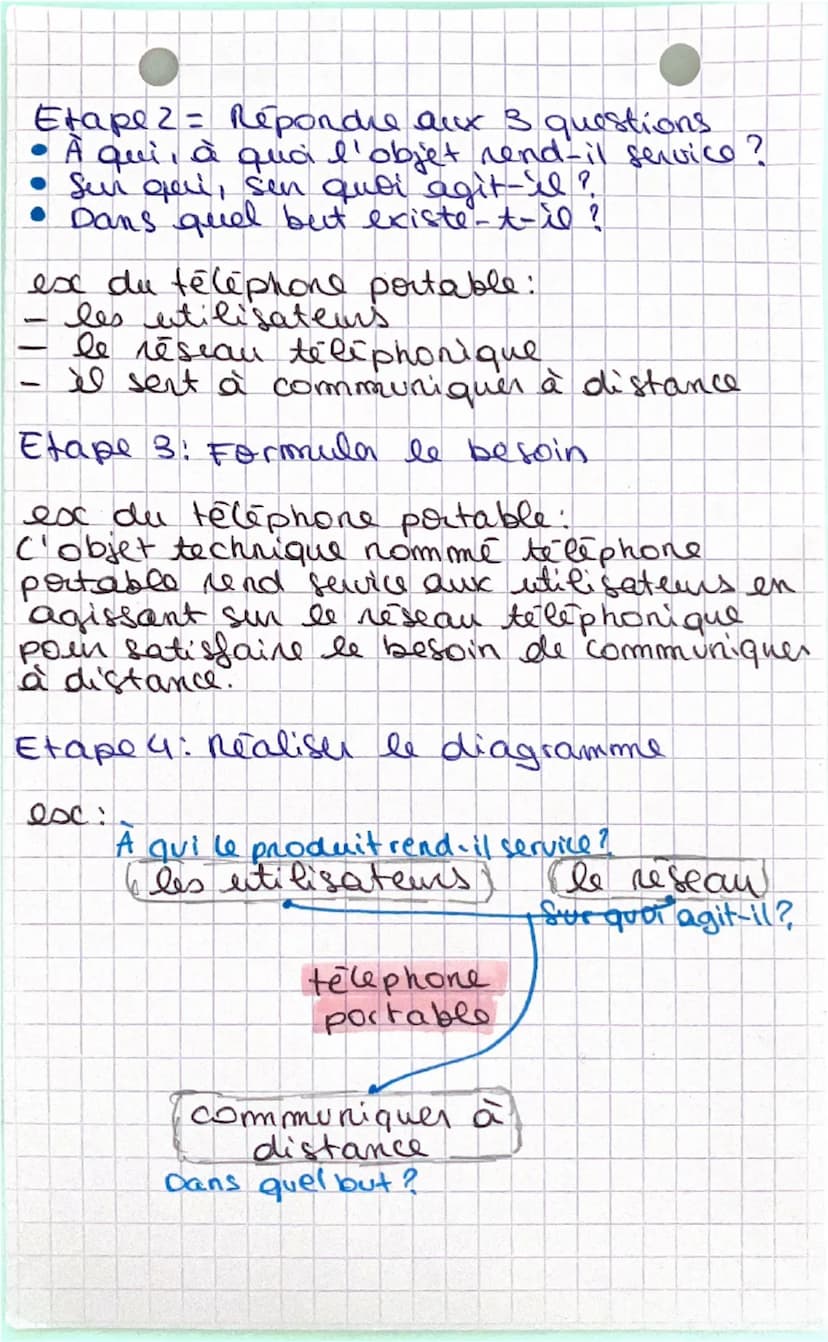 Etape 2 = Répondre aux 3 questions
• À qui, à quoi l'objet rend-il service ?
• Sur qui, sur quoi agit-il ?
• Dans quel but existe-t-il ?
ex du téléphone portable :
- les utilisateurs
- le réseau téléphonique
- il sert à communiquer à distance
Etape 3 : Formuler le besoin
ex du téléphone portable :
L'objet technique nommé téléphone
portable rend service aux utilisateurs en
agissant sur le réseau téléphonique
pour satisfaire le besoin de communiquer
à distance.
Etape 4 : Réaliser le diagramme
ex :
À qui le produit rend-il service ?
les utilisateurs le réseau
Sur quoi agit-il ?
téléphone
portable
communiquer à
distance
Dans quel but ?